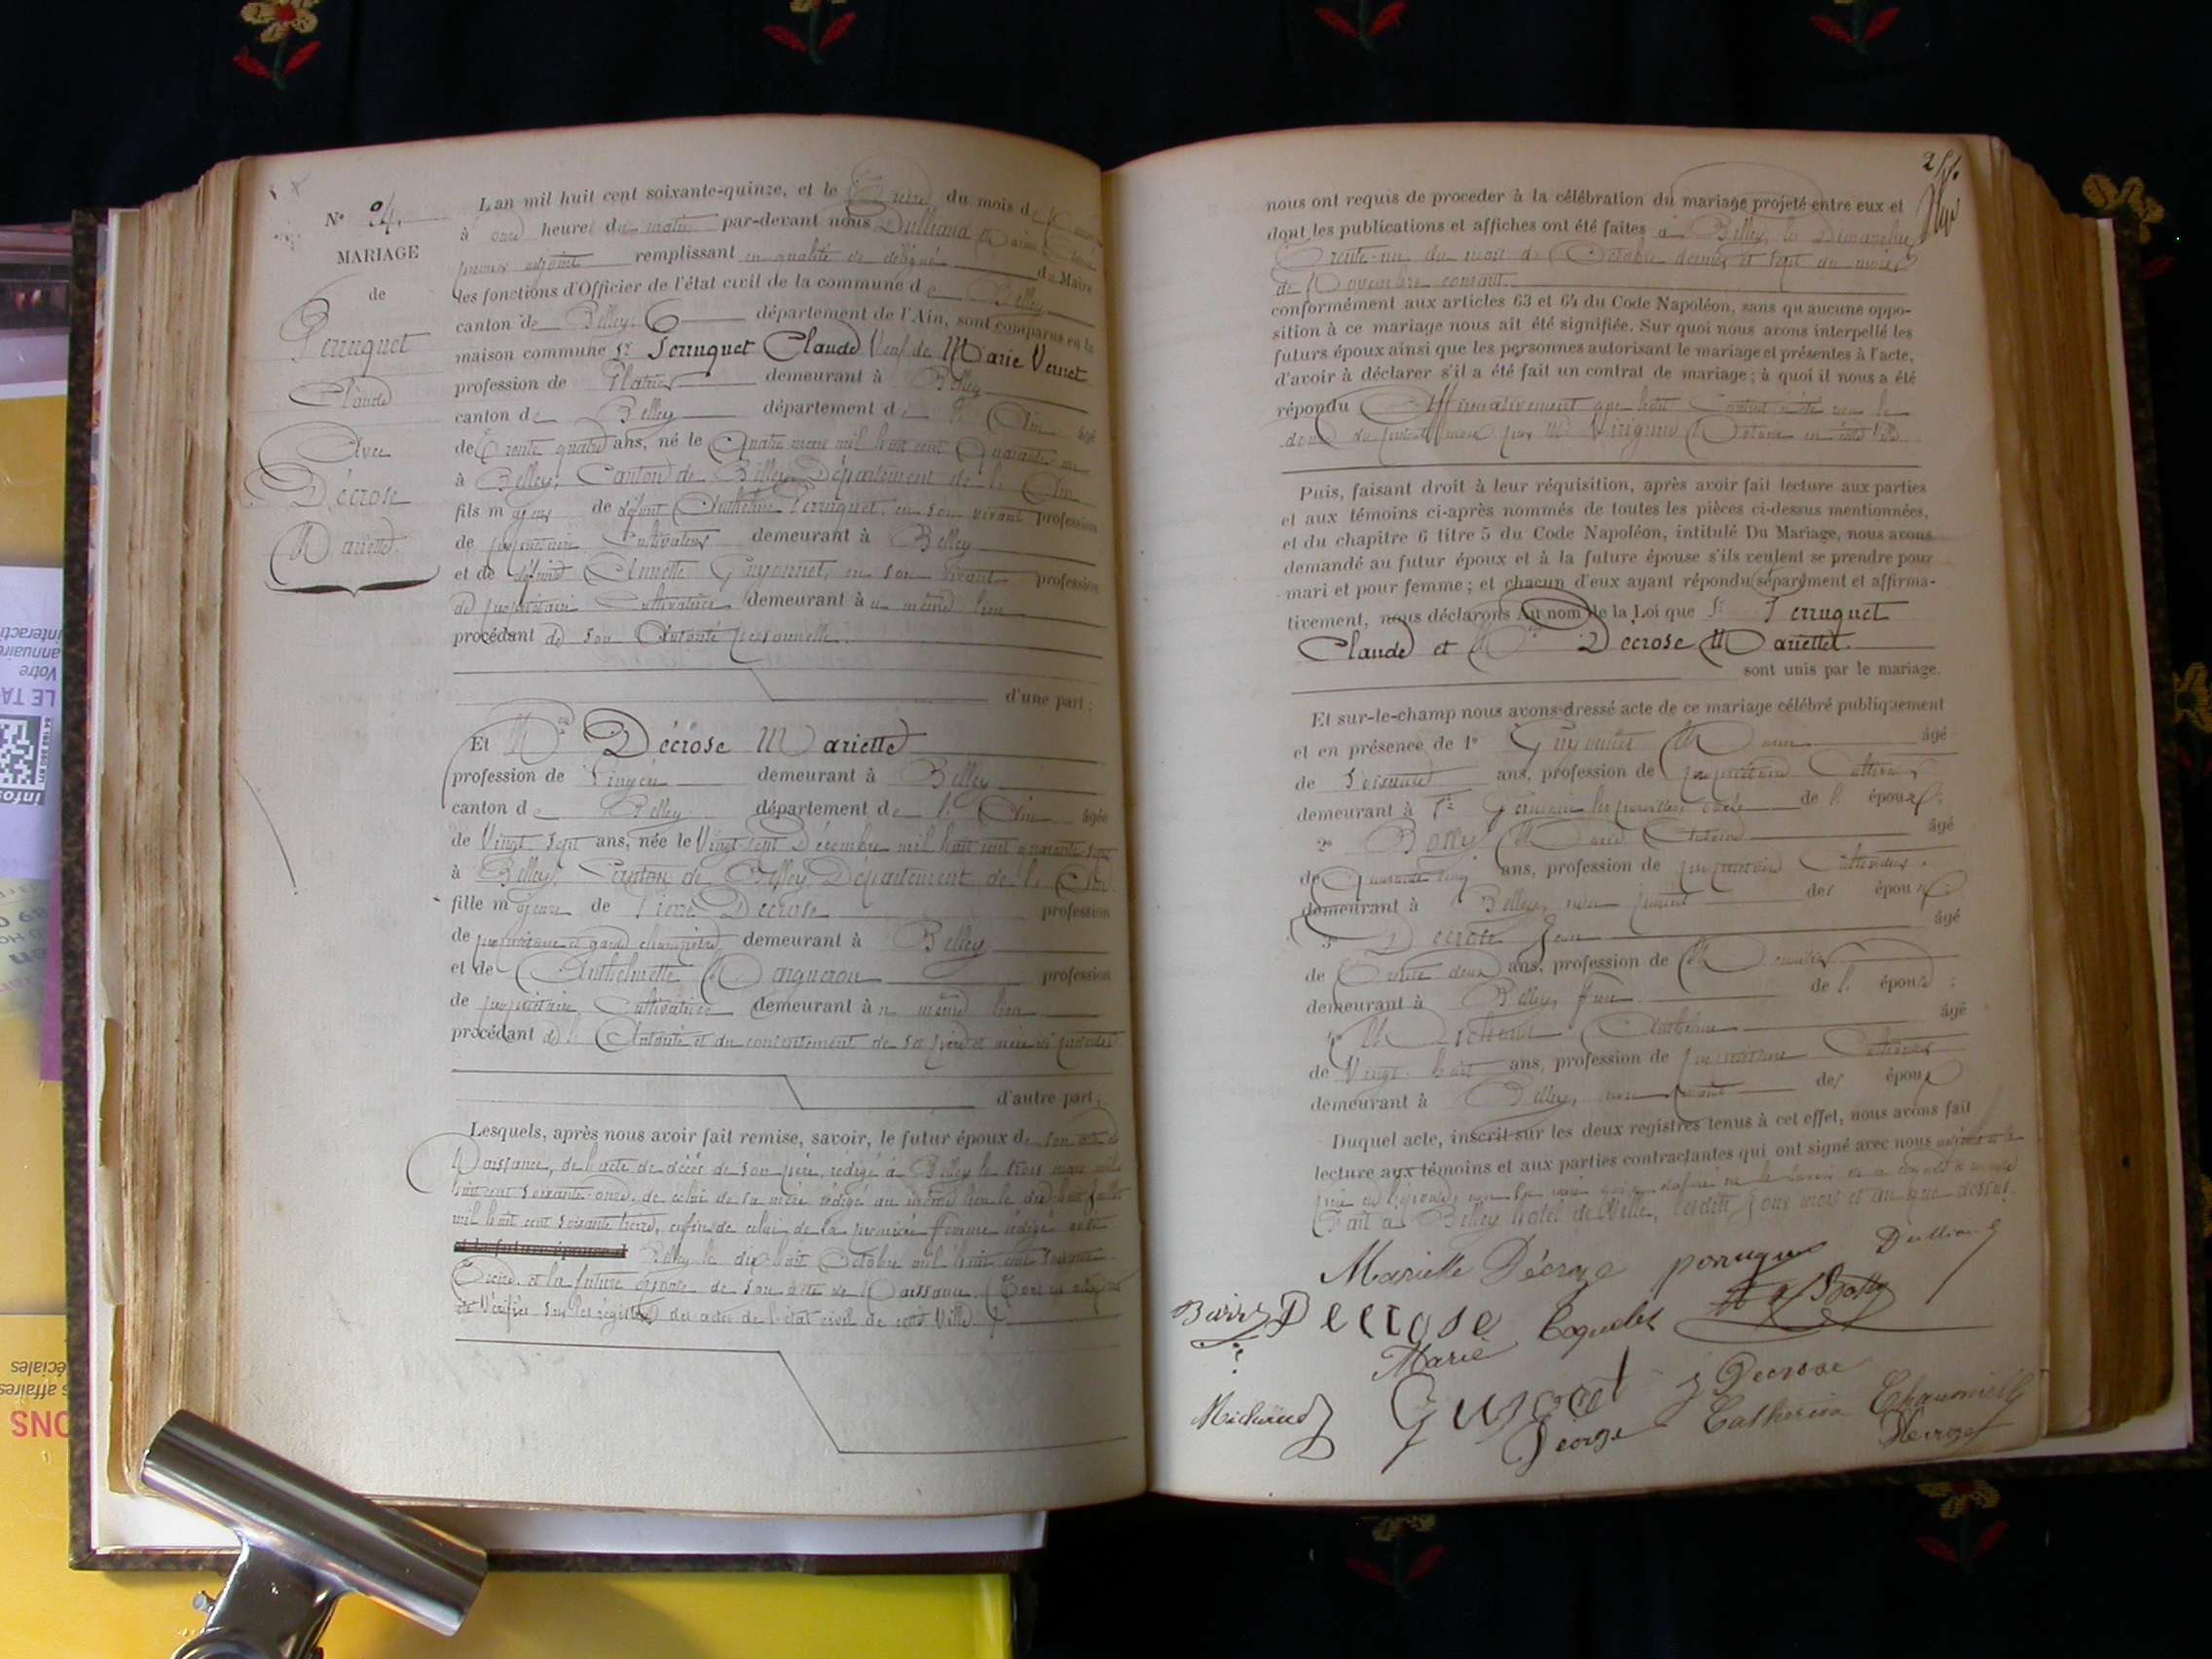 N° 24.
MARIAGE
de
Perruquet
Claude
Avec
Décrose
Mariette.
L'an mil huit cent soixante-quinze, et le Treize du mois de
à onze heures du matin par-devant nous Dulliand
premier adjoint remplissant en qualité de délégué du Maire
les fonctions d'Officier de l'état civil de la commune de Belley
canton de Belley département de l'Ain, sont comparus en la
maison commune Sr Perruquet Claude Veuf de Marie Vernet
profession de Platrier demeurant à Belley
canton de Belley département de l'Ain âgé
de Trente quatre ans, né le Quatre mars mil huit cent Quarante-un
à Belley, Canton de Belley, Département de l'Ain
fils majeur de défunt Anthelme Perruquet, en son vivant profession
de propriétaire Cultivateur demeurant à Belley
et de défunte Annette Guyonnet, en son vivant profession
de propriétaire Cultivatrice demeurant à u même lieu
procédant de son Autorité personnelle.
d'une part ;
Et Décrose Mariette
profession de Lingère demeurant à Belley
canton de Belley département de l'Ain âgée
de Vingt sept ans, née le Vingt-sept Décembre mil huit cent quarante-sept
à Belley, Canton de Belley, Département de l'Ain
fille majeure de Pierre Décrose profession
de propriétaire et garde champêtre demeurant à Belley
et de Anthelmette Maigneron profession
de propriétaire Cultivatrice demeurant à u même lieu
procédant de l'Autorité et du consentement de ses père et mère ici présents
d'autre part ;
Lesquels, après nous avoir fait remise, savoir, le futur époux de son acte de
Naissance, de l'acte de décès de son père, rédigé à Belley le trois mars mil
huit cent soixante-onze, de celui de sa mère rédigé au même lieu le dix huit Juillet
mil huit cent soixante treize, enfin de celui de sa première femme rédigé
Belley le dix-huit Octobre mil huit cent soixante
Treize, et la future épouse de son acte de Naissance.
Vérifiés sur les registres des actes de l'état civil de cette Ville.
nous ont requis de proceder à la célébration du mariage projeté entre eux et
dont les publications et affiches ont été faites à Belley, les Dimanches
Trente-un du mois de Octobre dernier et sept du mois
de Novembre courant.
conformément aux articles 63 et 64 du Code Napoléon, sans qu'aucune oppo-
sition à ce mariage nous ait été signifiée. Sur quoi nous avons interpellé les
futurs époux ainsi que les personnes autorisant le mariage et présentes à l'acte,
d'avoir à déclarer s'il a été fait un contrat de mariage ; à quoi il nous a été
répondu Affirmativement que ledit Contrat a été reçu le
du présent mois par Me Notaire en cette Ville
Puis, faisant droit à leur réquisition, après avoir fait lecture aux parties
et aux témoins ci-après nommés de toutes les pièces ci-dessus mentionnées,
et du chapitre 6 titre 5 du Code Napoléon, intitulé Du Mariage, nous avons
demandé au futur époux et à la future épouse s'ils veulent se prendre pour
mari et pour femme ; et chacun d'eux ayant répondu séparément et affirma-
tivement, nous déclarons Au nom de la Loi que Sr Perruquet
Claude et Décrose Mariette.
sont unis par le mariage.
Et sur-le-champ nous avons dressé acte de ce mariage célébré publiquement
et en présence de 1° Guyonnet âgé
de Soixante ans, profession de propriétaire Cultivateur
demeurant à St Germain les paroisses, oncle de l' époux ;
2° âgé
de Quarante cinq ans, profession de propriétaire Cultivateur
demeurant à Belley, non parent des époux ;
3° Décrose Jean âgé
de Trente deux ans, profession de Menuisier
demeurant à Belley, frère de l' épouse ;
4° Michaud Anthelme âgé
de Vingt-huit ans, profession de propriétaire Cultivateur
demeurant à Belley, non parent des époux
Duquel acte, inscrit sur les deux registres tenus à cet effet, nous avons fait
lecture aux témoins et aux parties contractantes qui ont signé avec nous
Fait à Belley hotel de Ville, lesdits jour mois et an que dessus.
Mariette Décroze Dulliand
Decrose
Marie
Michaud
J Decrose
George Catherina